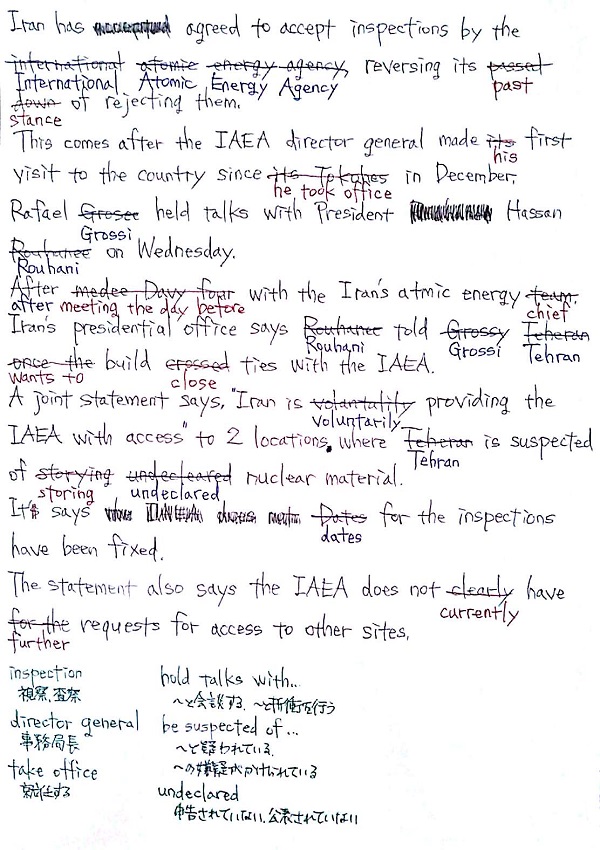 Iran has agreed to accept inspections by the
international atomic energy agency, reversing its passed
International Atomic Energy Agency past
down of rejecting them.
stance
This comes after the IAEA director general made its first
his
visit to the country since its Tokahes in December.
he took office
Rafael Grosee held talks with President Hassan
Grossi
Rouhanee on Wednesday.
Rouhani
After medee Davy four with the Iran's atmic energy team.
after meeting the day before chief
Iran's presidential office says Rouhanee told Grossy Teheran
Rouhani Grossi Tehran
once the build crossed ties with the IAEA.
wants to close
A joint statement says, "Iran is voluntality providing the
voluntarily
IAEA with access" to 2 locations. where Teheran is suspected
Tehran
of storying undecleared nuclear material.
storing undeclared
It says Dates for the inspections
dates
have been fixed.
The statement also says the IAEA does not clearly have
currently
for the requests for access to other sites.
further
inspection hold talks with...
視察、査察 〜と会談する、〜と折衝を行う
director general be suspected of...
事務局長 〜と疑われている、
take office 〜の嫌疑がかけられている
就任する undeclared
申告されていない、公表されていない